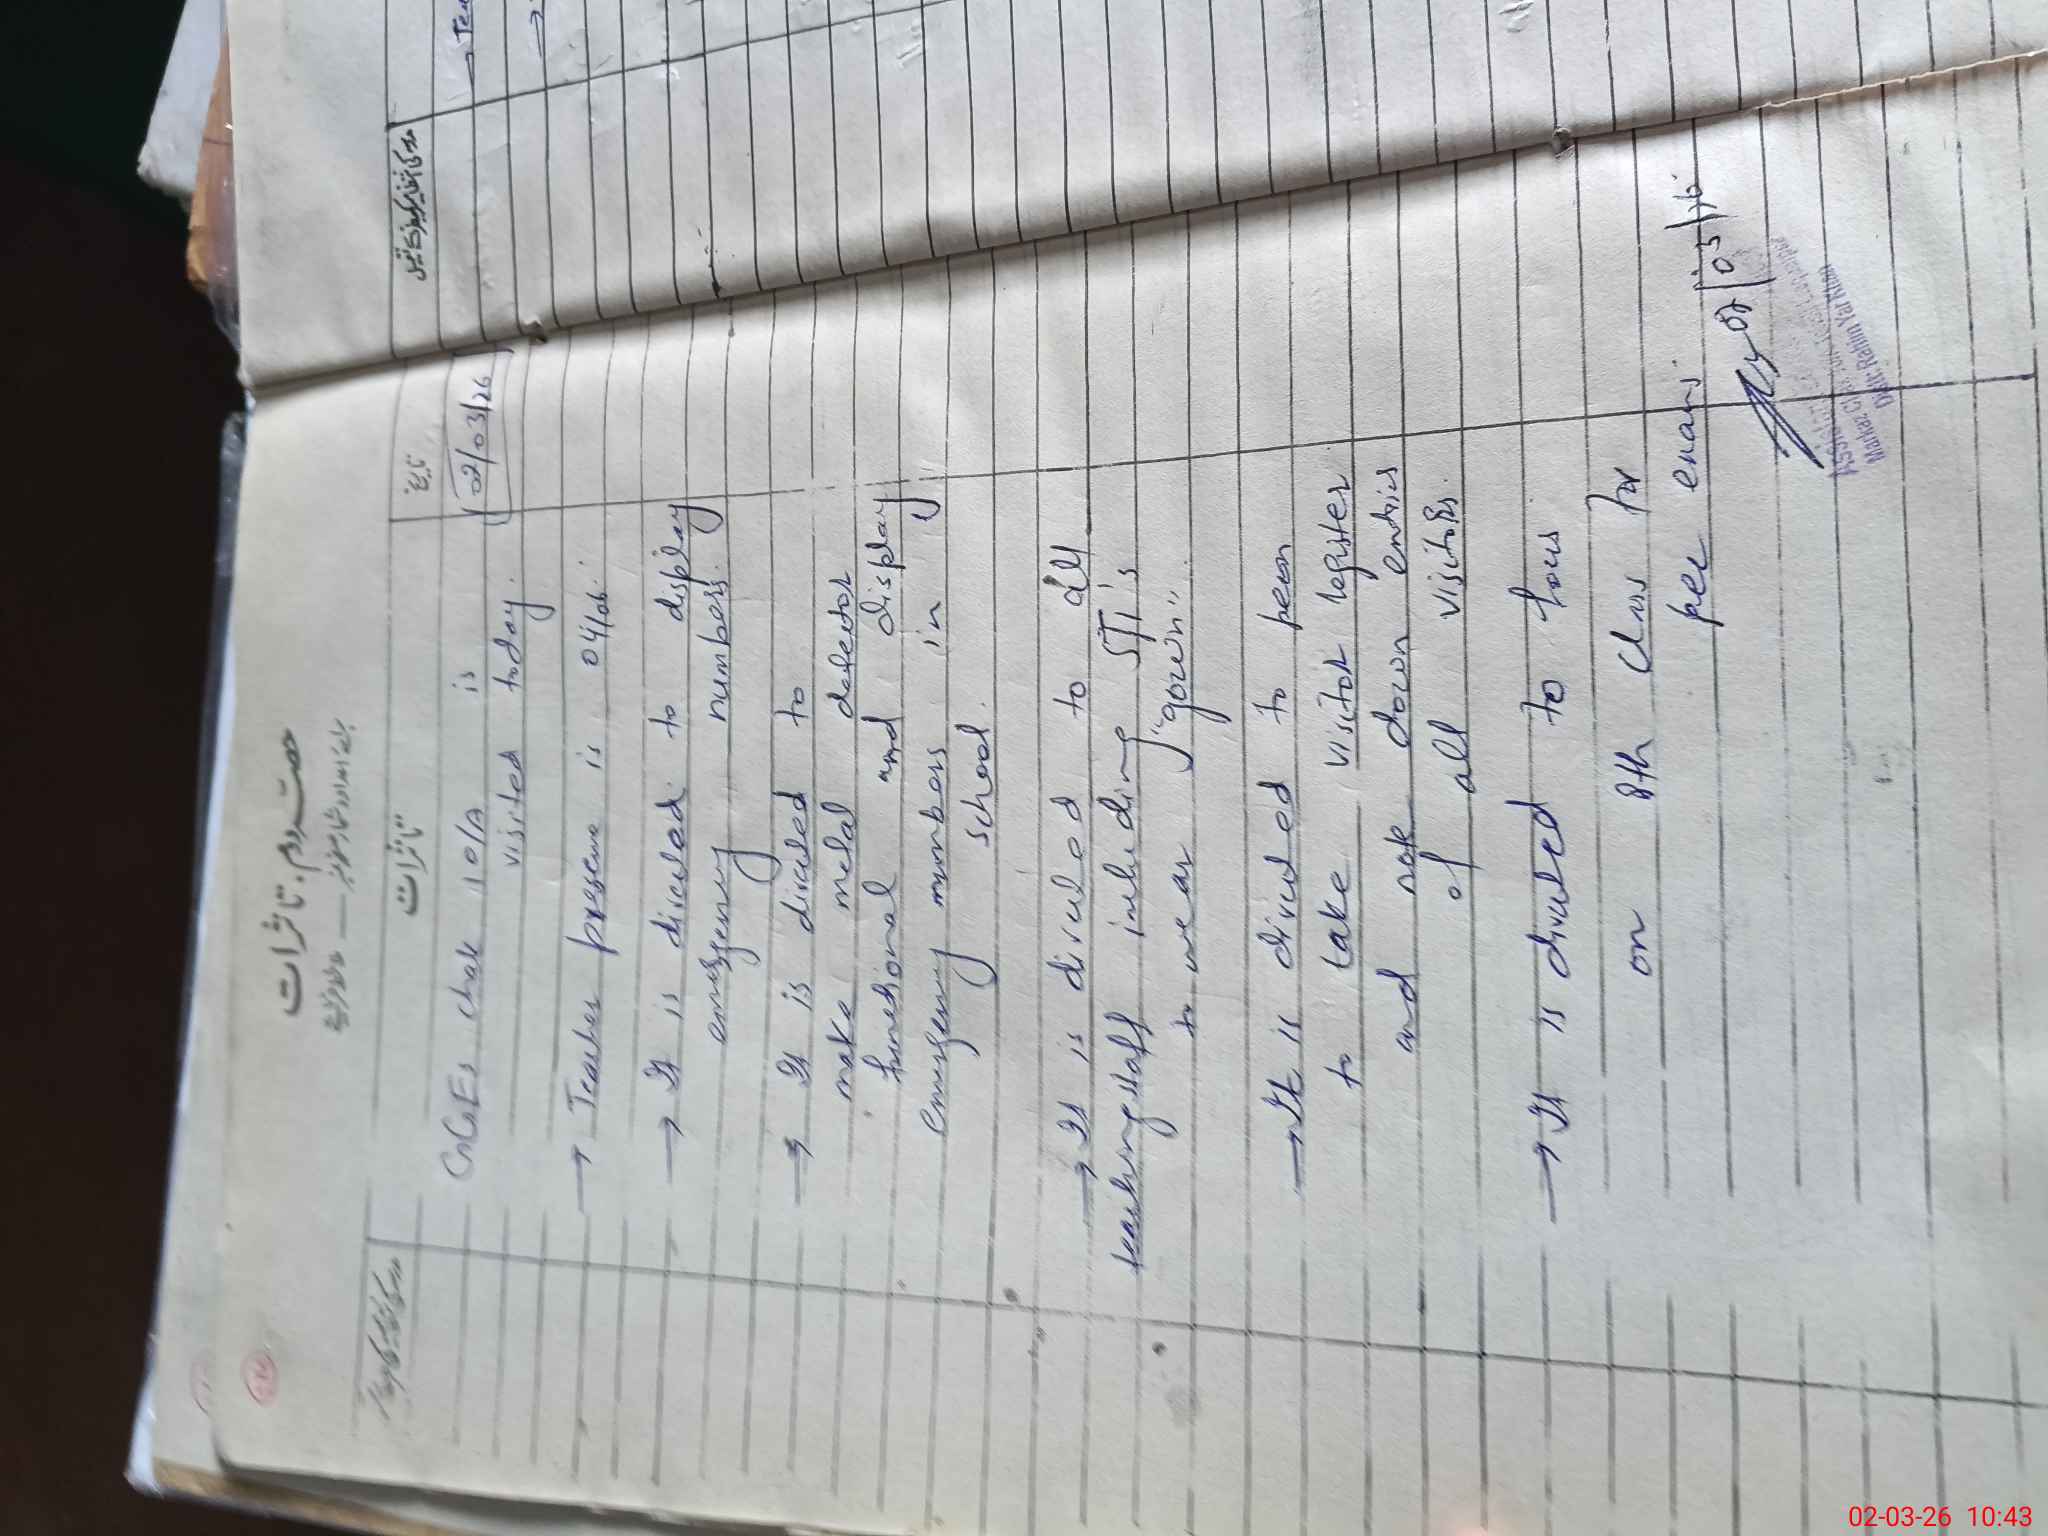 حصہ دوم: تاثرات
تاثرات
تاریخ
02/03/26
GGES chak 10/A is
visited today.
→ Teacher presence is 04/06.
→ It is directed to display
emergency numbers.
→ It is directed to
make metal detector
functional and display
emergency numbers in
school.
→ It is directed to all
teaching staff including STI's
to wear "gown".
→ It is directed to peon
to take visitor register
and note down entries
of all visitors.
→ It is directed to focus
on 8th class for
pec exams.
02/03/26
Distt: Rahim Yar Khan
02-03-26 10:43